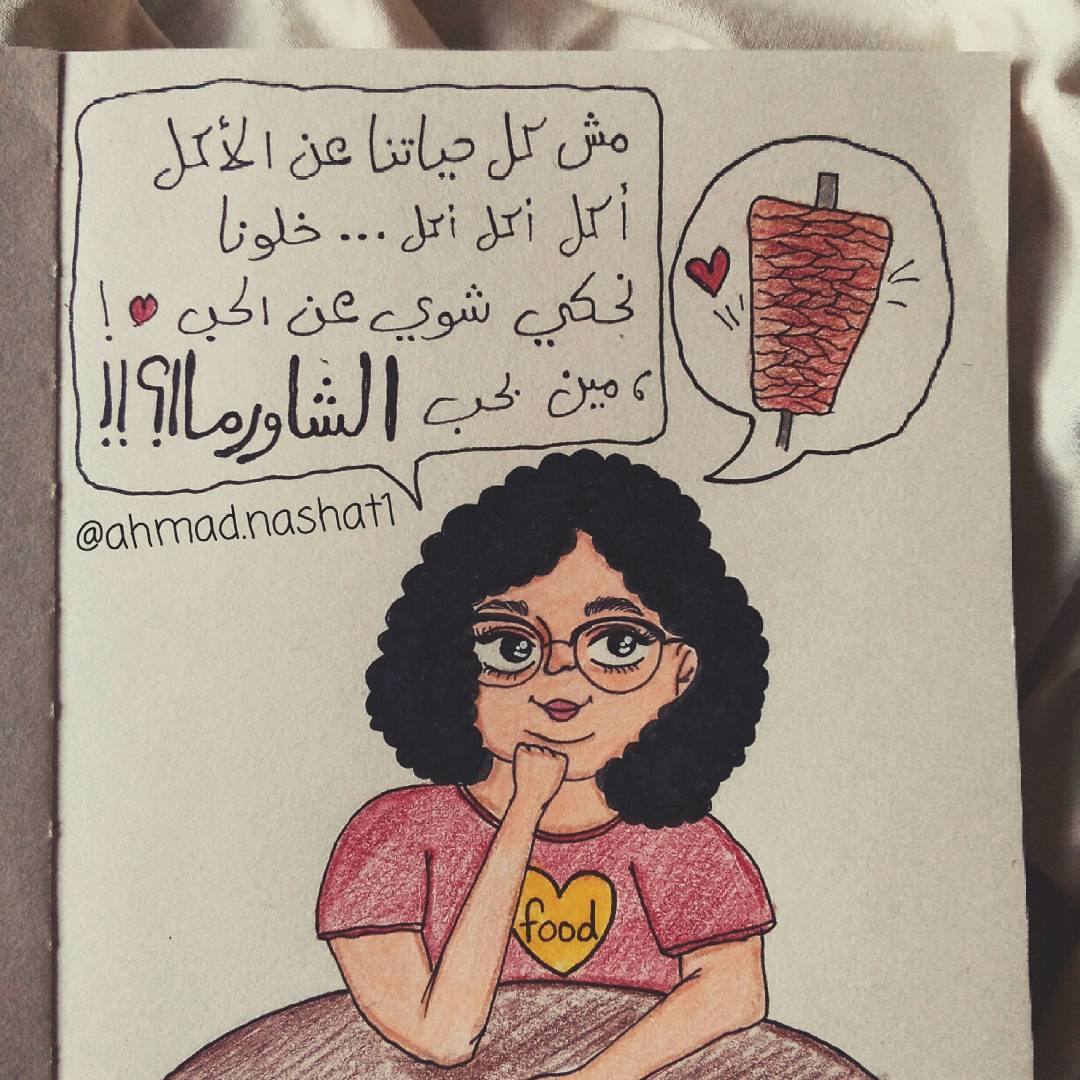 مش كل حياتنا عن الأكل
أكل أكل أكل ... خلونا
نحكي شوي عن الحب ❤ !
، مين بحب الشاورما!؟!!
@ahmad.nashat1
food